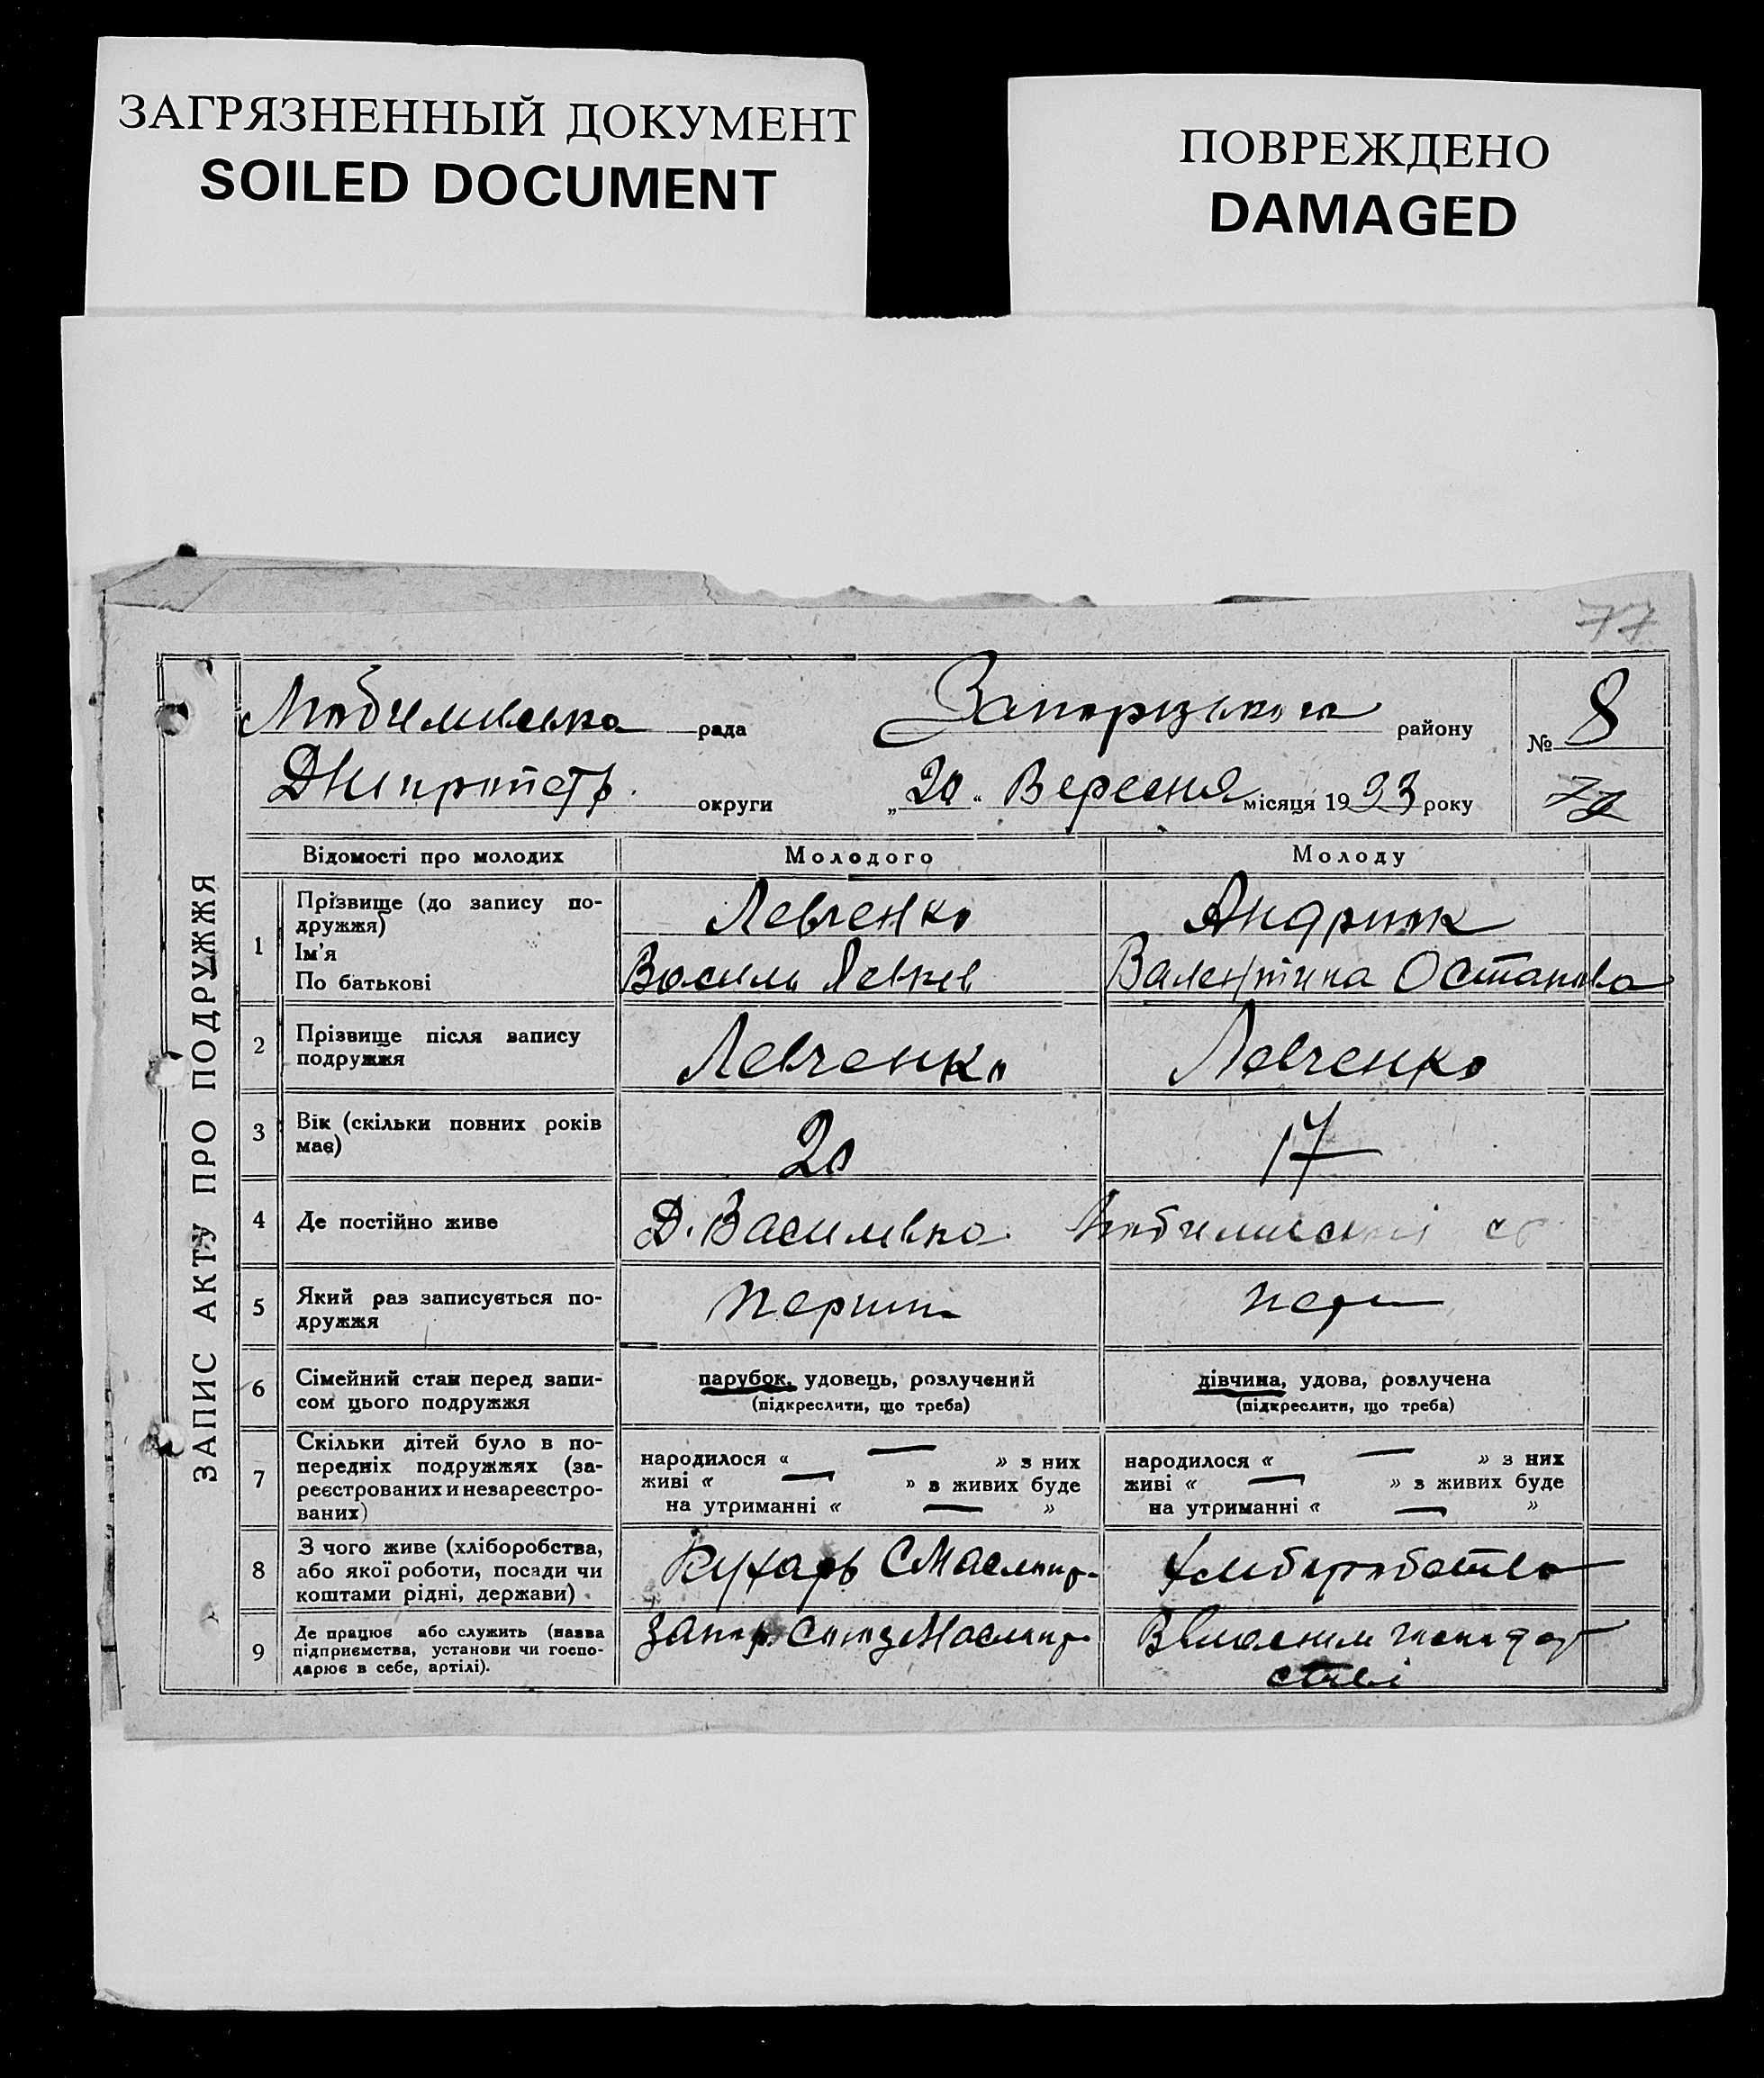 ЗАГРЯЗНЕННЫЙ ДОКУМЕНТ
SOILED DOCUMENT
ПОВРЕЖДЕНО
DAMAGED
77
ЗАПИС АКТУ ПРО ПОДРУЖЖЯ
Любимивська рада Запорizького району № 8
Дніпропетр. округи „20“ Вересня місяця 1933 року
Відомості про молодих Молодого Молоду
1 Прізвище (до запису по-
дружжя) Левченко Андрюк
Ім'я
По батькові Василь Валентина Остапова
2 Прізвище після запису
подружжя Левченко Левченко
3 Вік (скільки повних років
має) 20 17
4 Де постійно живе Д. Василівка
5 Який раз записується по-
дружжя перший перш
6 Сімейний стан перед запи-
сом цього подружжя
парубок, удовець, розлучений
(підкреслити, що треба)
дівчина, удова, розлучена
(підкреслити, що треба)
7 Скільки дітей було в по-
передніх подружжях (за-
реєстрованих и незареєстро-
ваних)
народилося « — » з них
живі « — » з живих буде
на утриманні « — »
народилося « — » з них
живі « — » з живих буде
на утриманні « — »
8 З чого живе (хліборобства,
або якої роботи, посади чи
коштами рідні, держави)
Кухарь
Хлиборобство
9 Де працює або служить (назва
підприємства, установи чи госпо-
дарює в себе, артілі).
Запор. СоюзМаслопр.
В власним господар
стві